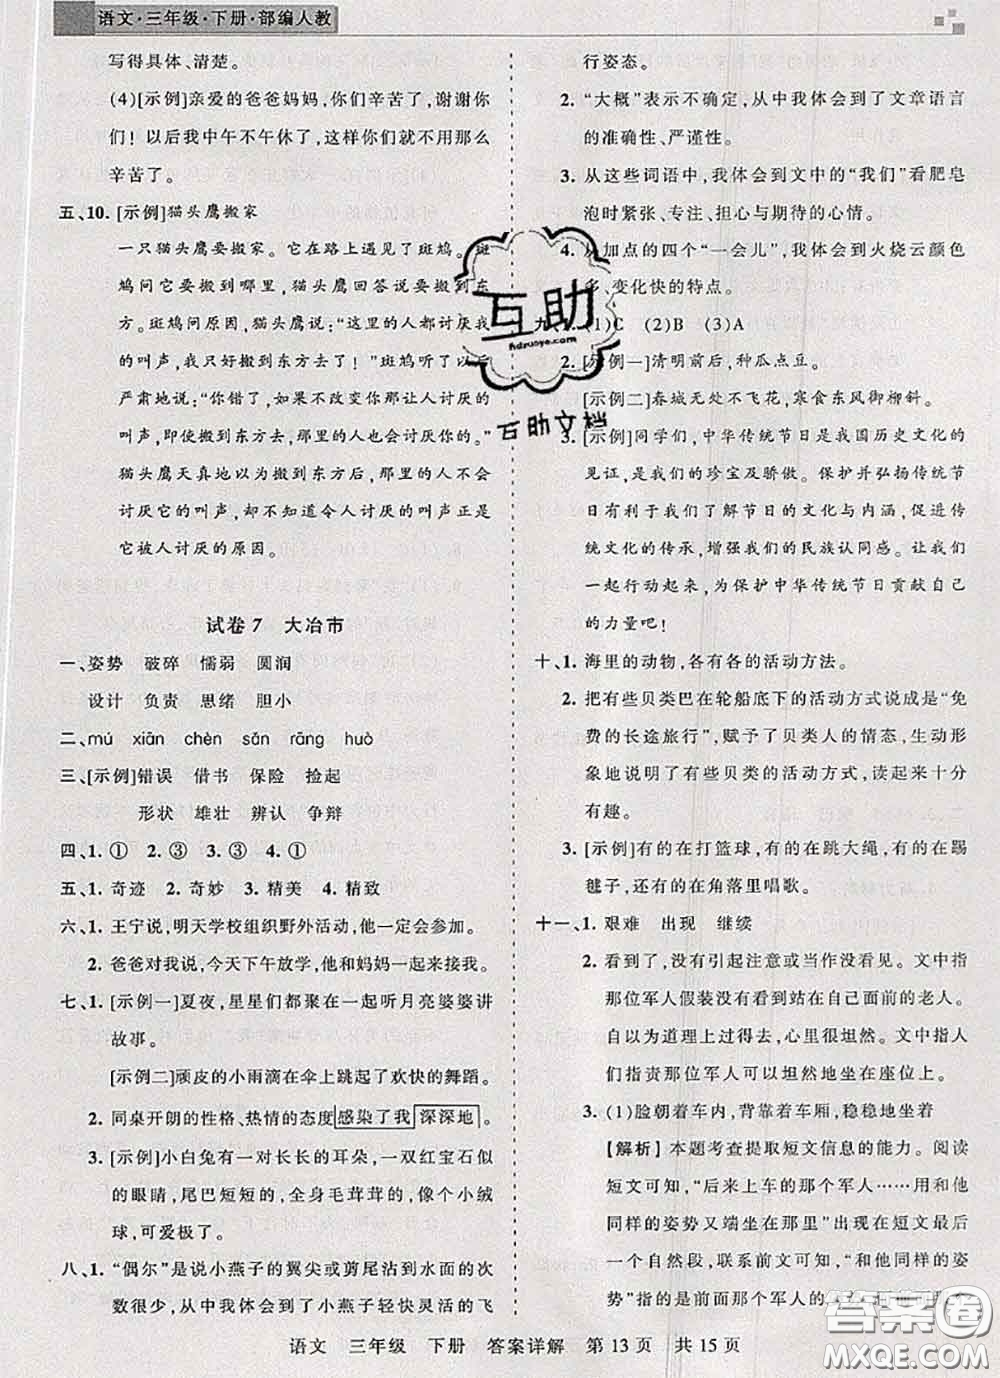 语文·三年级·下册·部编人教
写得具体、清楚。
(4)[示例]亲爱的爸爸妈妈,你们辛苦了,谢谢你
们！以后我中午不午休了,这样你们就不用那么
辛苦了。
五、10. [示例]猫头鹰搬家
一只猫头鹰要搬家。它在路上遇见了斑鸠。斑
鸠问它要搬到哪里,猫头鹰回答说要搬到东
方。斑鸠问原因,猫头鹰说：“这里的人都讨厌我
的叫声,我只好搬到东方去了！”斑鸠听了以后
严肃地说：“你错了,如果不改变你那让人讨厌的
叫声,即使搬到东方去,那里的人也会讨厌你的。”
猫头鹰天真地以为搬到东方后,那里的人不会
讨厌它的叫声,却不知道令人讨厌的叫声正是
它被人讨厌的原因。
试卷7 大冶市
一、姿势 破碎 懦弱 圆润
设计 负责 思绪 胆小
二、mú xiān chèn sǎn rāng huò
三、[示例]错误 借书 保险 捡起
形状 雄壮 辨认 争辩
四、1. ① 2. ③ 3. ③ 4. ①
五、1. 奇迹 2. 奇妙 3. 精美 4. 精致
六、1. 王宁说,明天学校组织野外活动,他一定会参加。
2. 爸爸对我说,今天下午放学,他和妈妈一起来接我。
七、1. [示例一]夏夜,星星们都聚在一起听月亮婆婆讲
故事。
[示例二]顽皮的小雨滴在伞上跳起了欢快的舞蹈。
2. 同桌开朗的性格、热情的态度感染了我深深地。
3. [示例]小白兔有一对长长的耳朵,一双红宝石似
的眼睛,尾巴短短的,全身毛茸茸的,像个小绒
球,可爱极了。
八、1. “偶尔”是说小燕子的翼尖或剪尾沾到水面的次
数很少,从中我体会到了小燕子轻快灵活的飞
行姿态。
2. “大概”表示不确定,从中我体会到了文章语言
的准确性、严谨性。
3. 从这些词语中,我体会到文中的“我们”看肥皂
泡时紧张、专注、担心与期待的心情。
4. 从加点的四个“一会儿”,我体会到火烧云颜色
多、变化快的特点。
九、1. (1)C (2)B (3)A
2. [示例一]清明前后,种瓜点豆。
[示例二]春城无处不飞花,寒食东风御柳斜。
3. [示例]同学们,中华传统节日是我国历史文化的
见证,是我们的珍宝及骄傲。保护并弘扬传统节
日有利于我们了解节日的文化与内涵,促进传
统文化的传承,增强我们的民族认同感。让我们
一起行动起来,为保护中华传统节日贡献自己
的力量吧！
十、1. 海里的动物,各有各的活动方法。
2. 把有些贝类巴在轮船底下的活动方式说成是“免
费的长途旅行”,赋予了贝类人的情态,生动形
象地说明了有些贝类的活动方式,读起来十分
有趣。
3. [示例]有的在打篮球,有的在跳大绳,有的在踢
毽子,还有的在角落里唱歌。
十一、1. 艰难 出现 继续
2. 看到了,没有引起注意或当作没看见。文中指
那位军人假装没有看到站在自己面前的老人。
自以为道理上过得去,心里很坦然。文中指人
们指责那位军人可以坦然地坐在座位上。
3. (1)脸朝着车内,背靠着车厢,稳稳地坐着
【解析】本题考查提取短文信息的能力。阅读
短文可知,“后来上车的那个军人……用和他
同样的姿势又端坐在那里”出现在短文最后
一个自然段,联系前文可知,“和他同样的姿
势”也就是那位先上车的军人的
语文 三年级 下册 答案详解 第13页 共15页
互助
hdzuoye.com
互助文档
答案圈
MXQE.COM